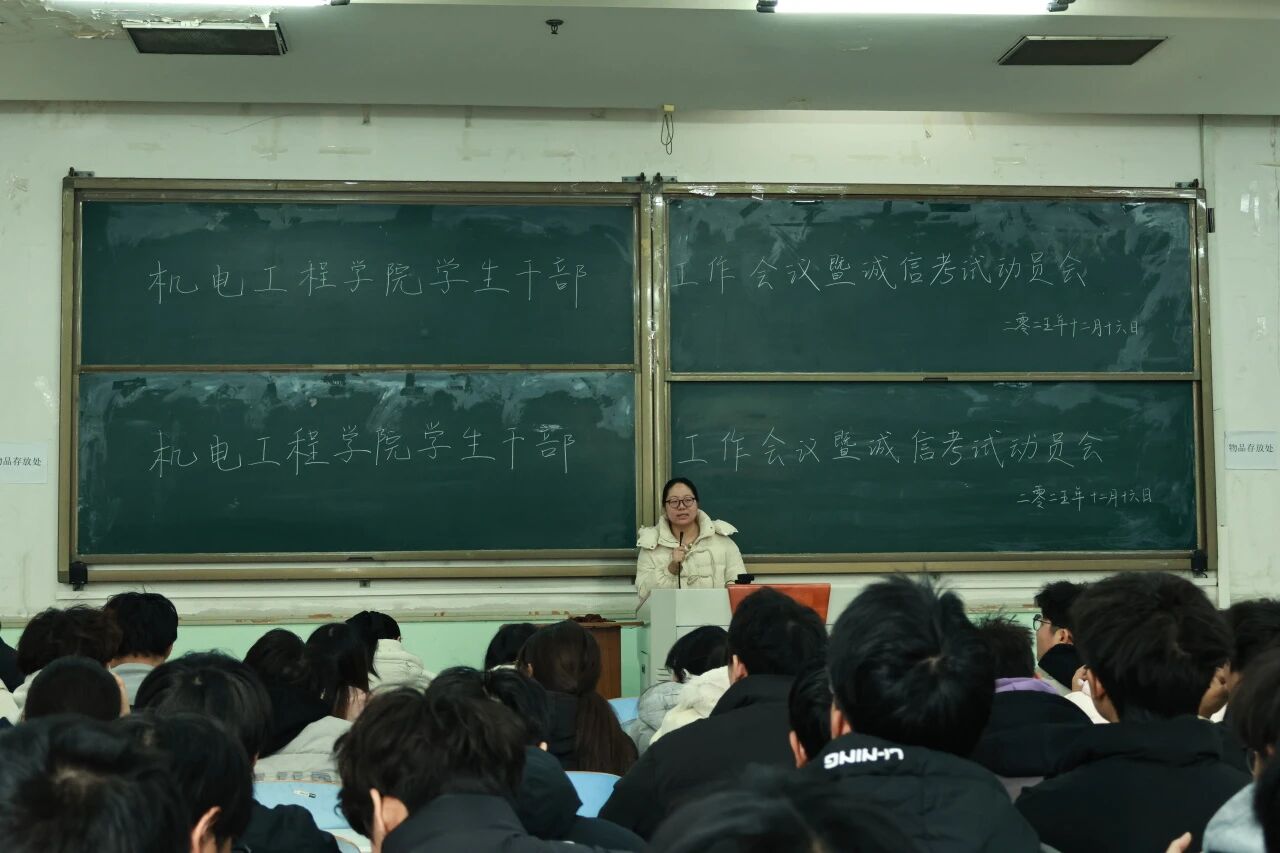 机电工程学院学生干部
工作会议暨诚信考试动员会
二零二五年十二月十六日
机电工程学院学生干部
工作会议暨诚信考试动员会
二零二五年十二月十六日
物品存放处
物品存放处
LI-NING